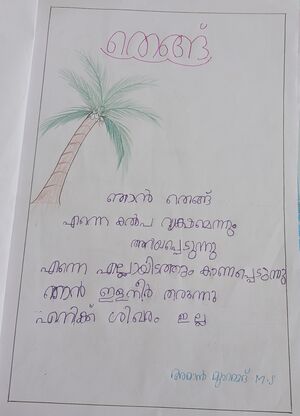 തെങ്ങ്
ഞാൻ തെങ്ങ്
എന്നെ കൽപ വൃക്ഷമെന്നും
അറിയപ്പെടുന്നു
എന്നെ എല്ലായിടത്തും കാണപ്പെടുന്നു
ഞാൻ ഇളനീർ തരുന്നു
എനിക്ക് ശിഖരം ഇല്ല
അമാൻ മുഹമ്മദ് M.S